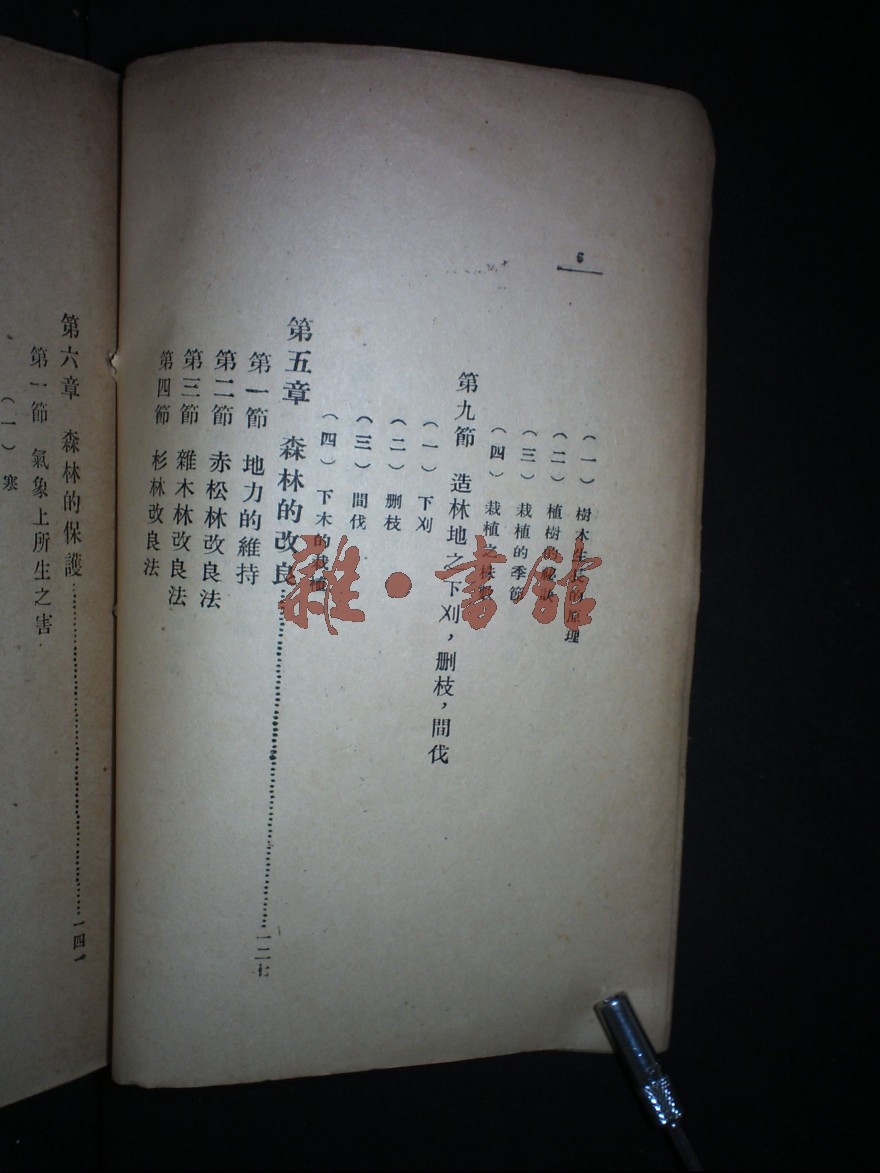 6
(一) 樹木生長的原理
(二) 植樹的秘訣
(三) 栽植的季節
(四) 栽植之株數
第九節 造林地之下刈，删枝，間伐
(一) 下刈
(二) 删枝
(三) 間伐
(四) 下木的栽植
第五章 森林的改良……一二七
第一節 地力的維持
第二節 赤松林改良法
第三節 雜木林改良法
第四節 杉林改良法
第六章 森林的保護……一四一
第一節 氣象上所生之害
(一) 寒
雜·書館